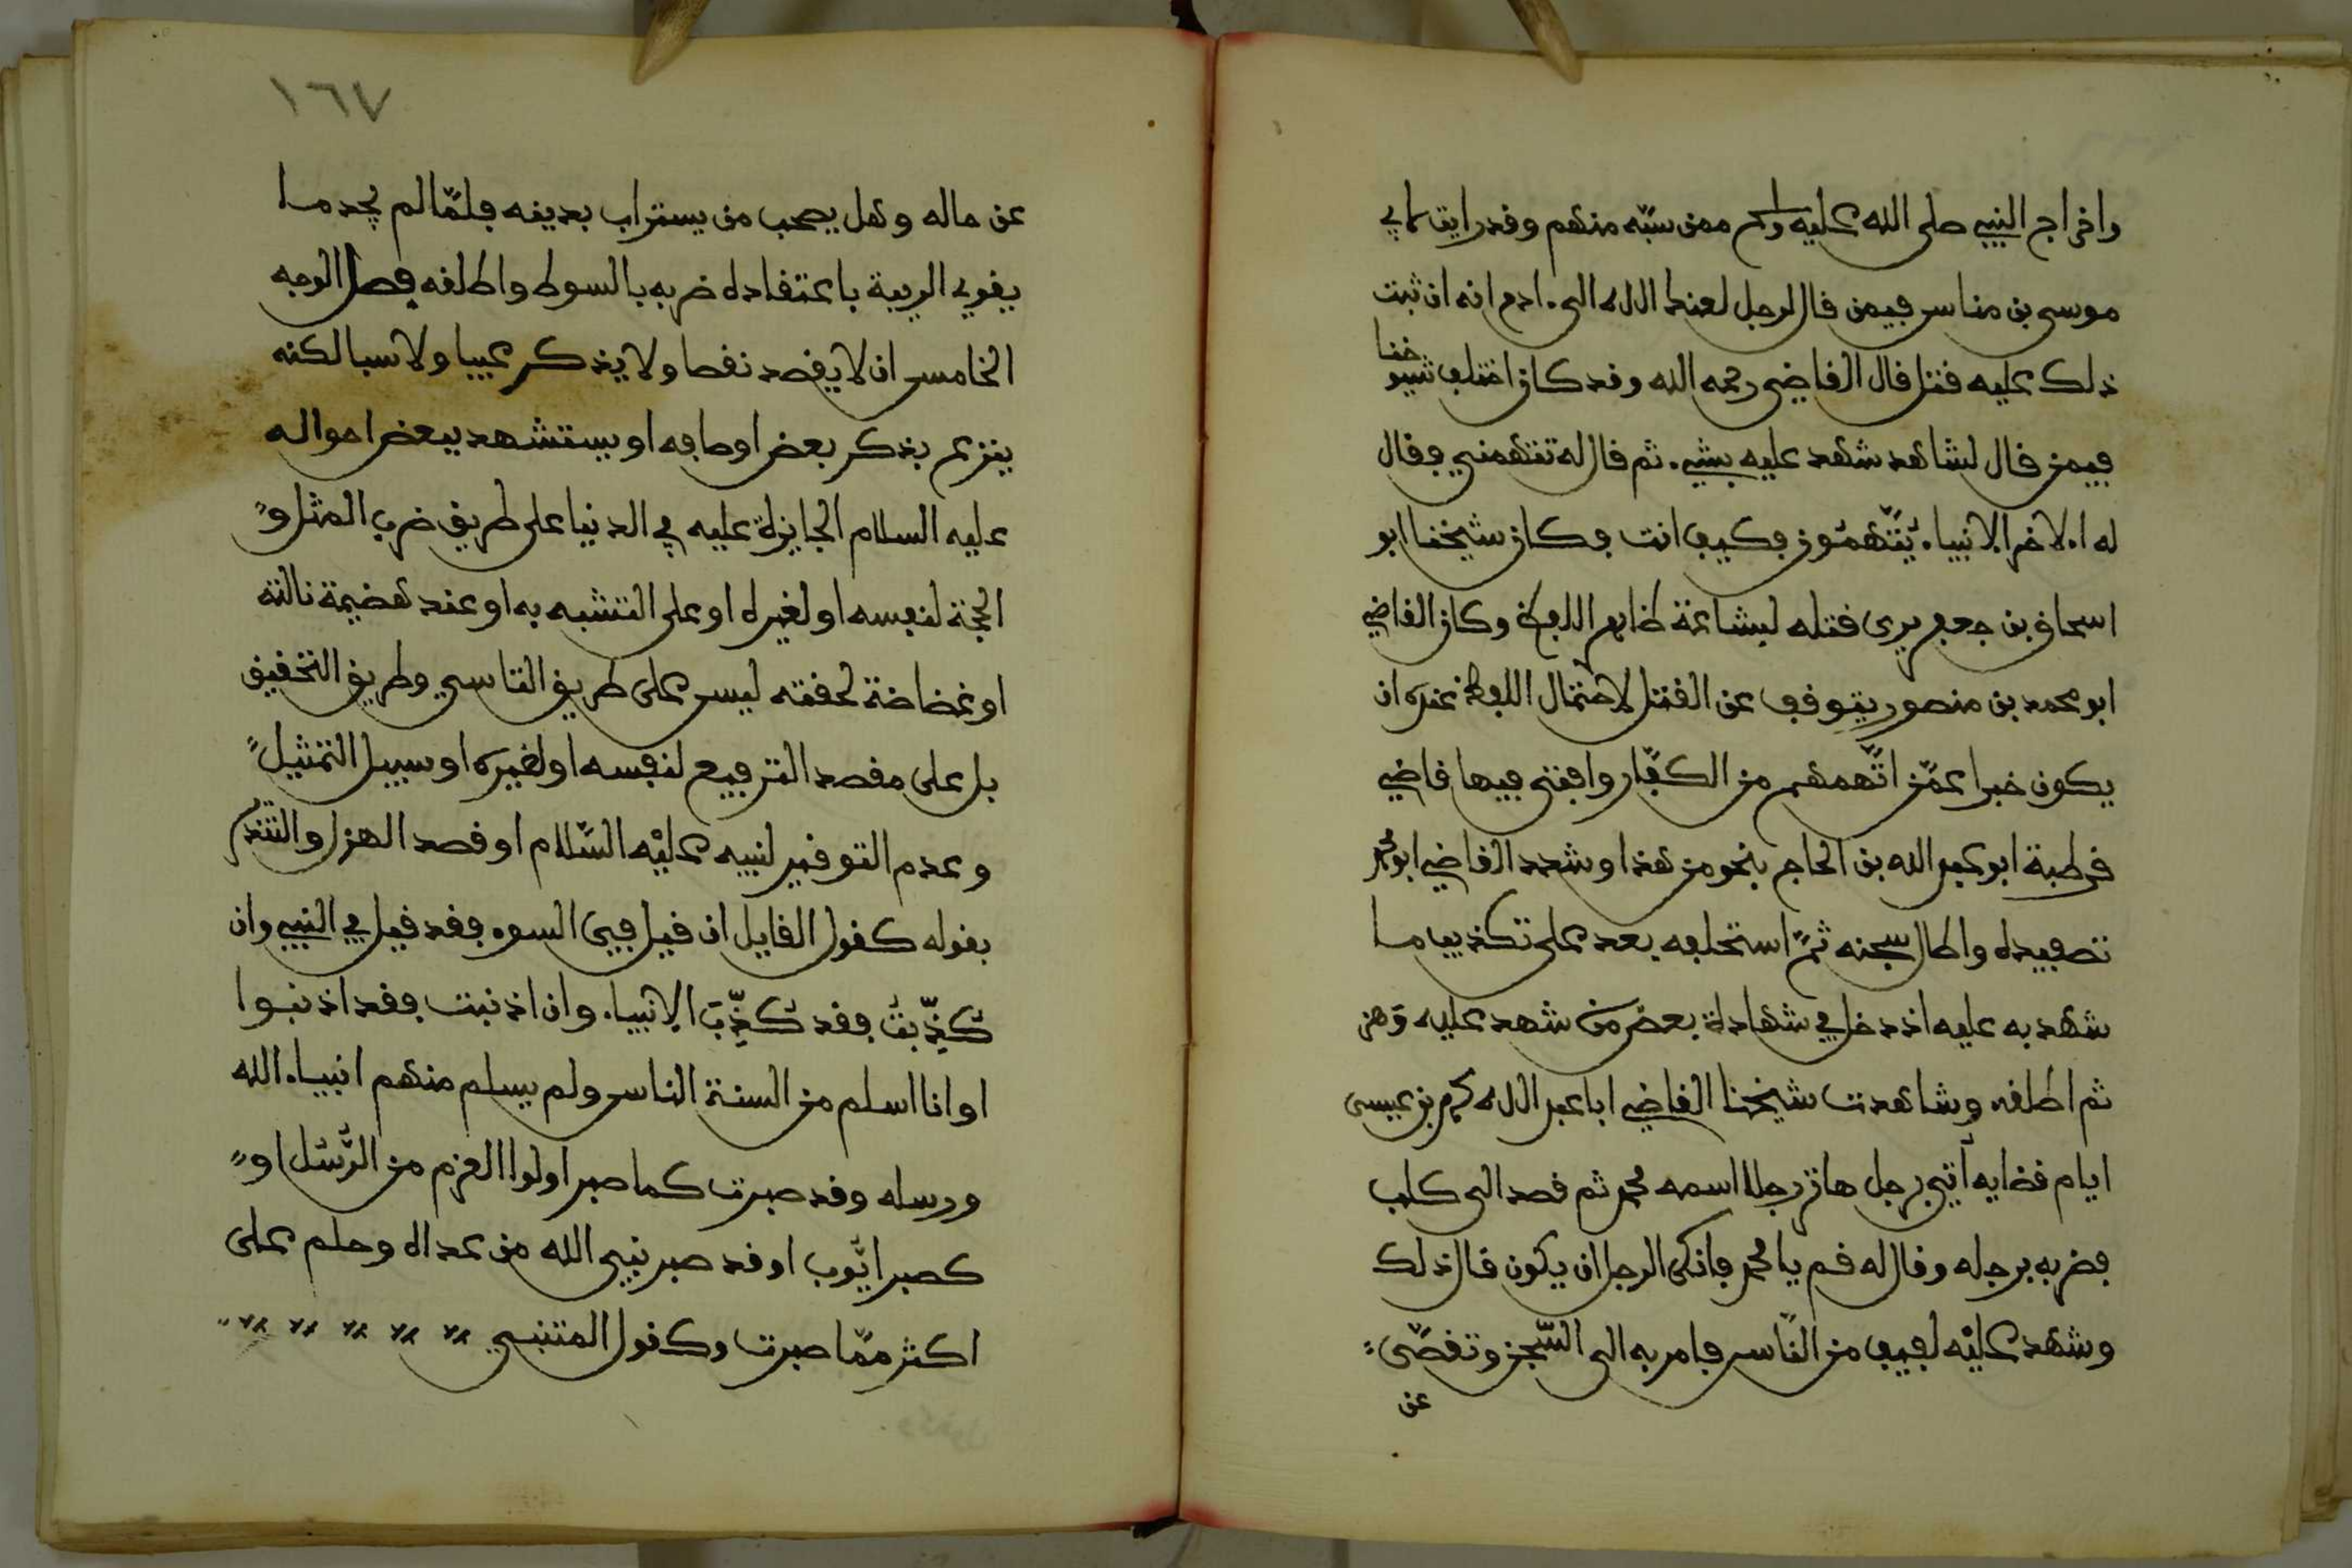 واخراج النبي صلى الله عليه وسلم ممن سبّه منهم وقد رايت لابي
موسى بن مناس فيمن قال لرجل لعنه الله الى ادم انه ان ثبت
ذلك عليه قتل قال القاضي رحمه الله وقد كان اختلف شيوخنا
فيمن قال لشاهد شهد عليه بشيء ثم قال له تتهمني فقال
له الاخر الانبياء يُتَّهَمُون فكيف انت فكان شيخنا ابو
اسحاق بن جعفر يرى قتله لبشاعة ظاهر اللفظ وكان القاضي
ابو محمد بن منصور يتوقف عن القتل لاحتمال اللفظ عنده ان
يكون خبرا عمّن اتَّهمهم من الكفّار وافتى فيها قاضي
قرطبة ابو عبد الله بن الحاج بنحو من هذا وشدد القاضي ابو محمد
تصفيده واطال سجنه ثمّ استحلفه بعد على تكذيب ما
شهد به عليه اذ دخل في شهادة بعض من شهد عليه وَهن
ثم اطلقه وشاهدت شيخنا القاضي ابا عبد الله محمد بن عيسى
ايام قضايه أتي برجل هاتر رجلا اسمه محمد ثم قصد الى كلب
فضربه برجله وقال له قم يا محمد فانكر الرجل ان يكون قال ذلك
وشهد عليْه لفيف من النّاس فامر به الى السّجن وتقصّى
عن
١٦٧
عن حاله وهل يصحب من يستراب بدينه فلمّا لم يجد ما
يقوي الريبة باعتقاده ضربه بالسوط واطلقه فصل الوجه
الخامس ان لا يقصد نقصا ولا يذكر عيبا ولا سبا لكنه
ينزع بذكر بعض اوصافه او يستشهد ببعض احواله
عليه السلام الجايزة عليه في الدنيا على طريق ضرب المثل و
الحجة لنفسه او لغيره او على التشبه به او عند هضيمة نالته
او غضاضة لحقته ليس على طريق التاسي وطريق التحقيق
بل على مقصد الترفيع لنفسه او لغيره او سبيل التمثيل
وعدم التوقير لنبيه عليْه السّلام او قصد الهزل والتنذير
بقوله كقول القايل ان قيل فيّ السوء فقد قيل في النبي وان
كُذِّبتُ فقد كُذِّبَ الانبياء وان اذنبت فقد اذنبوا
او انا اسلم من السنة الناس ولم يسلم منهم انبياء الله
ورسله وقد صبرت كما صبر اولوا العزم من الرُّسُل او
كصبر ايّوب او قد صبر نبي الله من عداه وحلم على
اكثر ممّا صبرت وكقول المتنبي